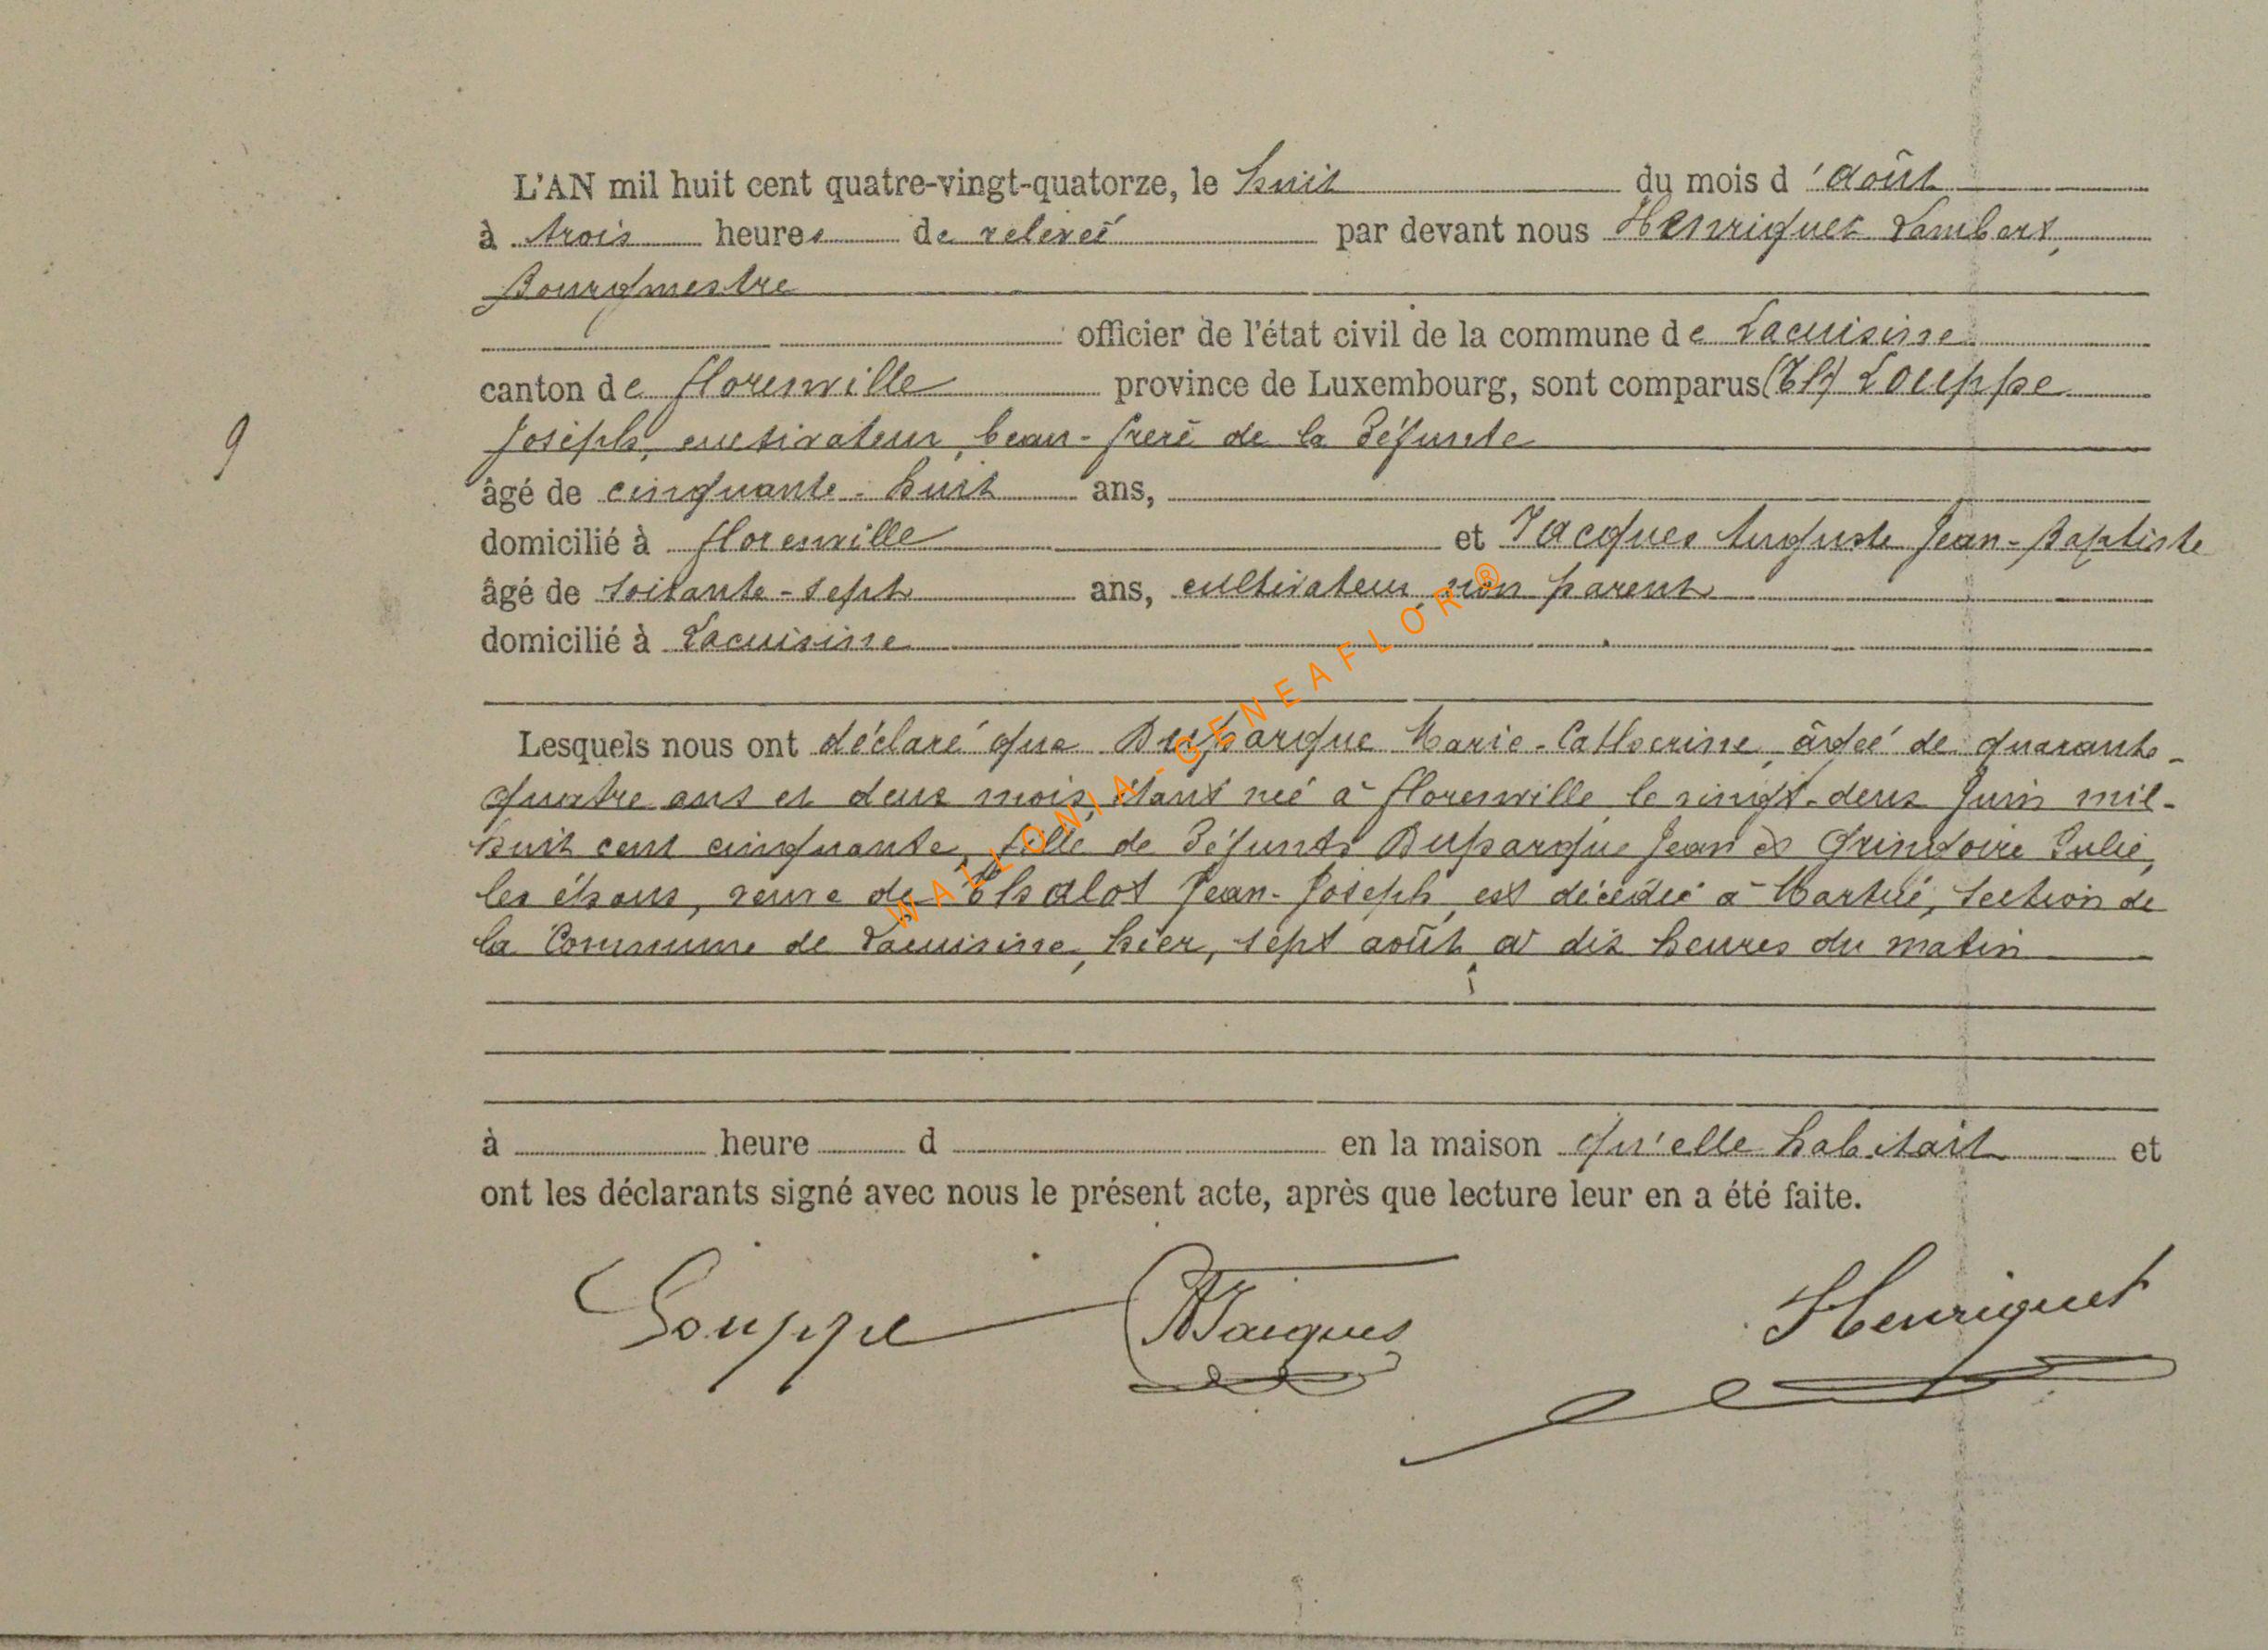 L'AN mil huit cent quatre-vingt-quatorze, le huit du mois d'août
à trois heures de relevée par devant nous Henriquet Lambert,
Bourgmestre
officier de l'état civil de la commune de Lacuisine
canton de Florenville province de Luxembourg, sont comparus Louppe
Joseph, cultivateur, beau-frère de la défunte
9
âgé de cinquante-huit ans,
domicilié à Florenville et Jacques Auguste Jean-Baptiste
âgé de soixante-sept ans, cultivateur, non parent
domicilié à Lacuisine
WALLONIA-GENEAFLOR®
Lesquels nous ont déclaré que Duparque Marie-Catherine, âgée de quarante-
quatre ans et deux mois, étant née à Florenville le vingt-deux Juin mil-
huit cent cinquante, fille de défunts Duparque Jean et Gringoire Julie,
les époux, veuve de Thalot Jean-Joseph, est décédée à Martué, section de
la Commune de Lacuisine, hier, sept août, à dix heures du matin
à heure d en la maison qu'elle habitait et
ont les déclarants signé avec nous le présent acte, après que lecture leur en a été faite.
Louppe AJacques Henriquet